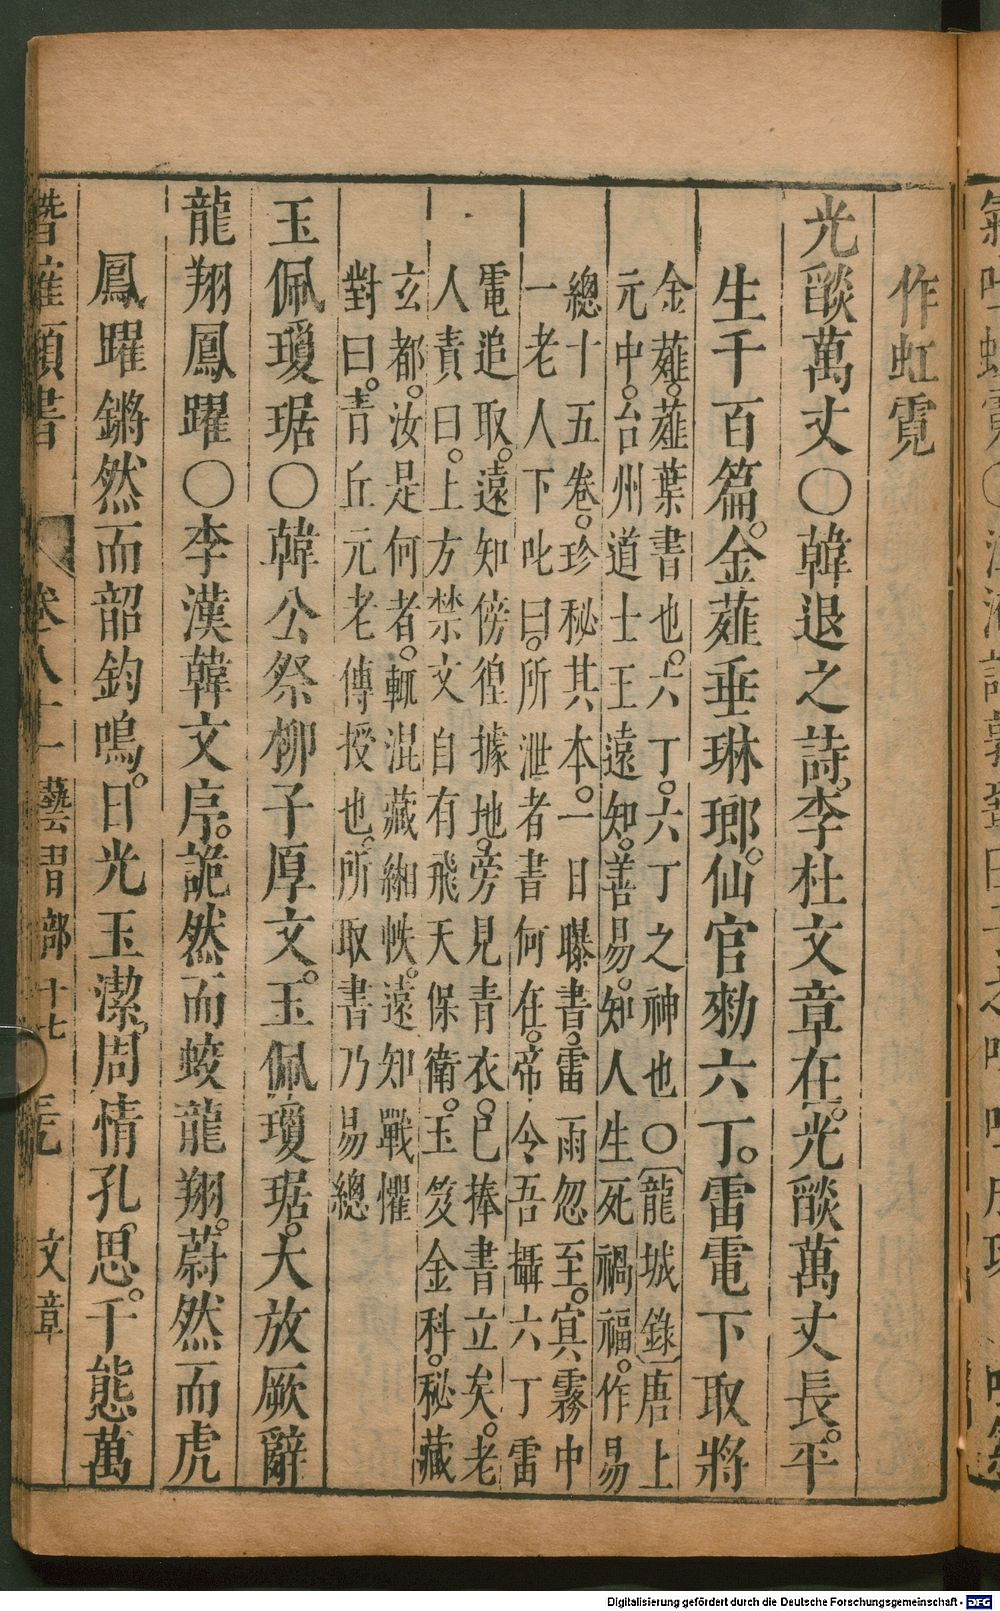 作虹霓
光燄萬丈○韓退之詩。李杜文章在。光燄萬丈長。平
生千百篇。金薤垂琳瑯。仙官勑六丁。雷電下取將
金薤。薤葉書也。六丁。六丁之神也○〔龍城錄〕唐上
元中。台州道士王遠知。善易。知人生死禍福。作易
總十五卷。珍秘其本。一日曝書。雷雨忽至。寘霧中
一老人下叱曰。所泄者書何在。帝令吾攝六丁雷
電追取。遠知傍徨據地。旁見青衣。已捧書立矣。老
人責曰。上方禁文自有飛天保衛。玉笈金科。秘藏
玄都。汝是何者。輒混藏緗帙。遠知戰懼
對曰。青丘元老傳授也。所取書乃易總
玉佩瓊琚○韓公祭柳子厚文。玉佩瓊琚。大放厥辭
龍翔鳳躍○李漢韓文序。詭然而蛟龍翔。蔚然而虎
鳳躍鏘然而韶鈞鳴。日光玉潔。周情孔思。千態萬
卷八十一 藝習部十七 文章
Digitalisierung gefördert durch die Deutsche Forschungsgemeinschaft - DFG